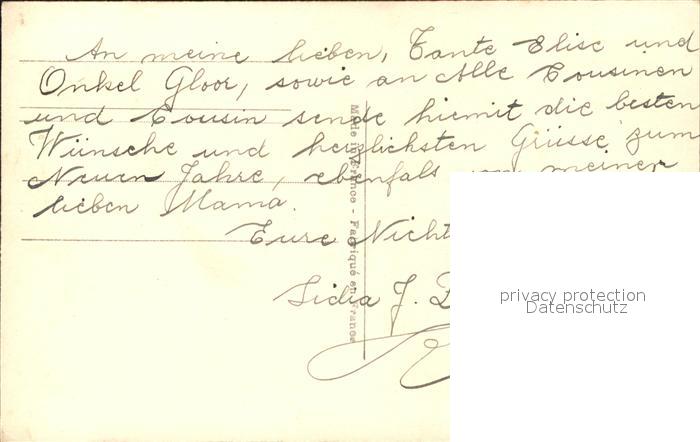 An meine lieben, Tante Elise und
Onkel Gloor, sowie an Alle Cousinen
und Cousin sende hiemit die besten
Wünsche und herzlichsten Grüsse zum
Neuen Jahre, ebenfals von meiner
lieben Mama.
Eure Nicht
Lidia J.
Made in France - Fabriqué en France
privacy protection
Datenschutz